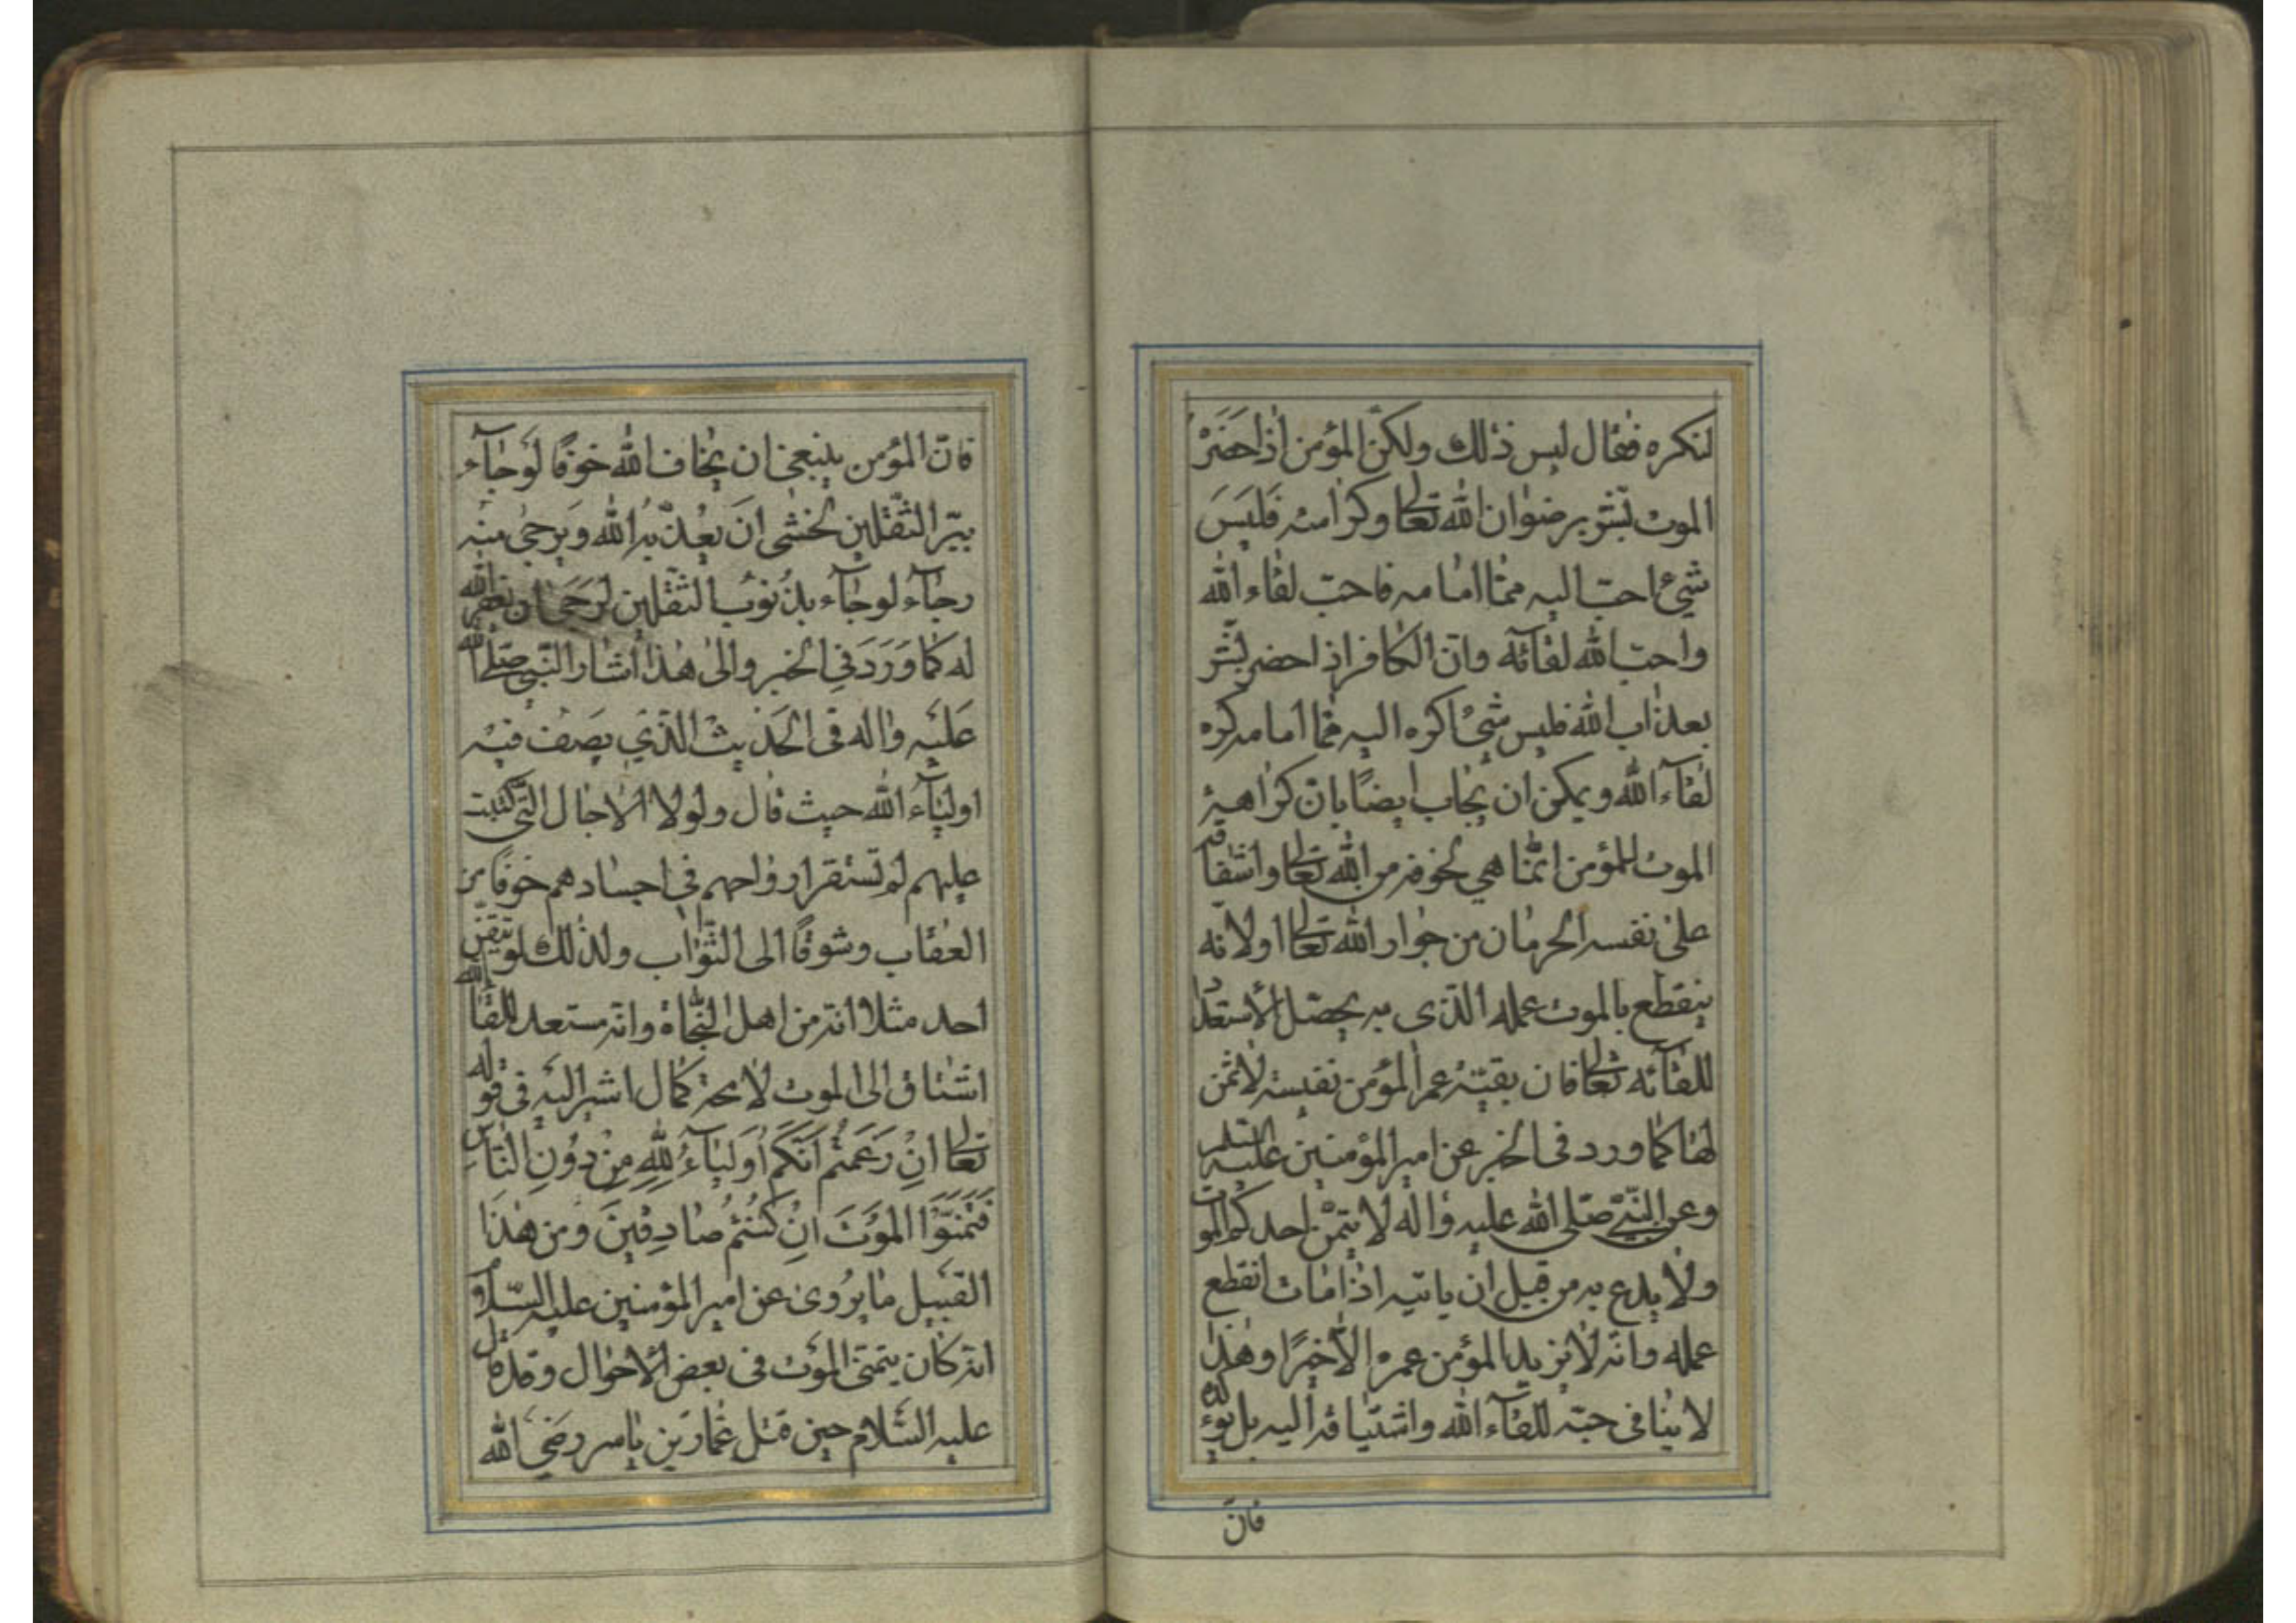 لنكره فقال ليس ذلك ولكنّ المؤمن اذا حَضَرَ
الموت بُشّر برضوان الله تعالى وكرامته فَليسَ
شيئ احبّ اليه ممّا امامه فاحبّ لقاء الله
واحبّ الله لقائه وانّ الكافر اذا حضر بُشّر
بعذاب الله فليس شيئ اكره اليه ممّا امامه كره
لقاء الله ويمكن ان يجاب ايضًا بانّ كراهية
الموت للمؤمن انّما هي لخوفه من الله تعالى واشفاقه
على نفسه الحرمان من جوار الله تعالى اولانه
ينقطع بالموت عمله الذّى به يحصّل الأستعداد
للقائه تعالى فان بقيّة عمر المؤمن نفيسة لا ثمن
لها كما ورد فى الخبر عن امير المؤمنين عليه السلم
وعن النّبيّ صلّى الله عليه واله لا يتمنّ احدكم الموت
ولا يدع به من قبل ان ياتيه اذا مات انقطع
عمله وانّه لا يزيد المؤمن عمره الّا خيرًا وهذا
لا ينافى حبّه للقاء الله واشتياقه اليه بل
فانّ
فانّ المؤمن ينبغى ان يخاف الله خوفًا لَو جاء
ببرّ الثّقلين لخشى انَ يعُذّبهُ الله وَيرجى منه
رجاء لو جاء بذُنوب الثّقلين لرَجَى ان يغفر الله
له كما وَرَدَ فى الخبر والى هذا اشار النّبى صلّى الله
عَليَه واله فى الحَديث الذّي يَصِف فيه
اولياء الله حيث قال ولولا الاجال التّى كُتبت
عليهم لم تستقر ارواحهم فى اجسادهم خوفًا من
العقاب وشوقًا الى الثّواب ولذلك لو تيقّن
احد مثلا انّه من اهل النّجاة وانّه مستعد للقاء الله
اشتاق الى الموت لا محة كما اشير اليَه فى قوله
تعالى انِ زَعَمتُم اَنّكَم اَولياءُ لِلّهِ مِن دوُنِ النّاسِ
فَتَمَنّوَا المَوَتَ انِ كنُتمُ صادِقينَ ومن هذا
القبيل ما يرُوى عن امير المؤمنين عليه السّلام
انّه كان يتمنّى الموت فى بعض الاحوال وقد قال
عليه السّلام حين قتل عمّار بن ياسر رضَى الله